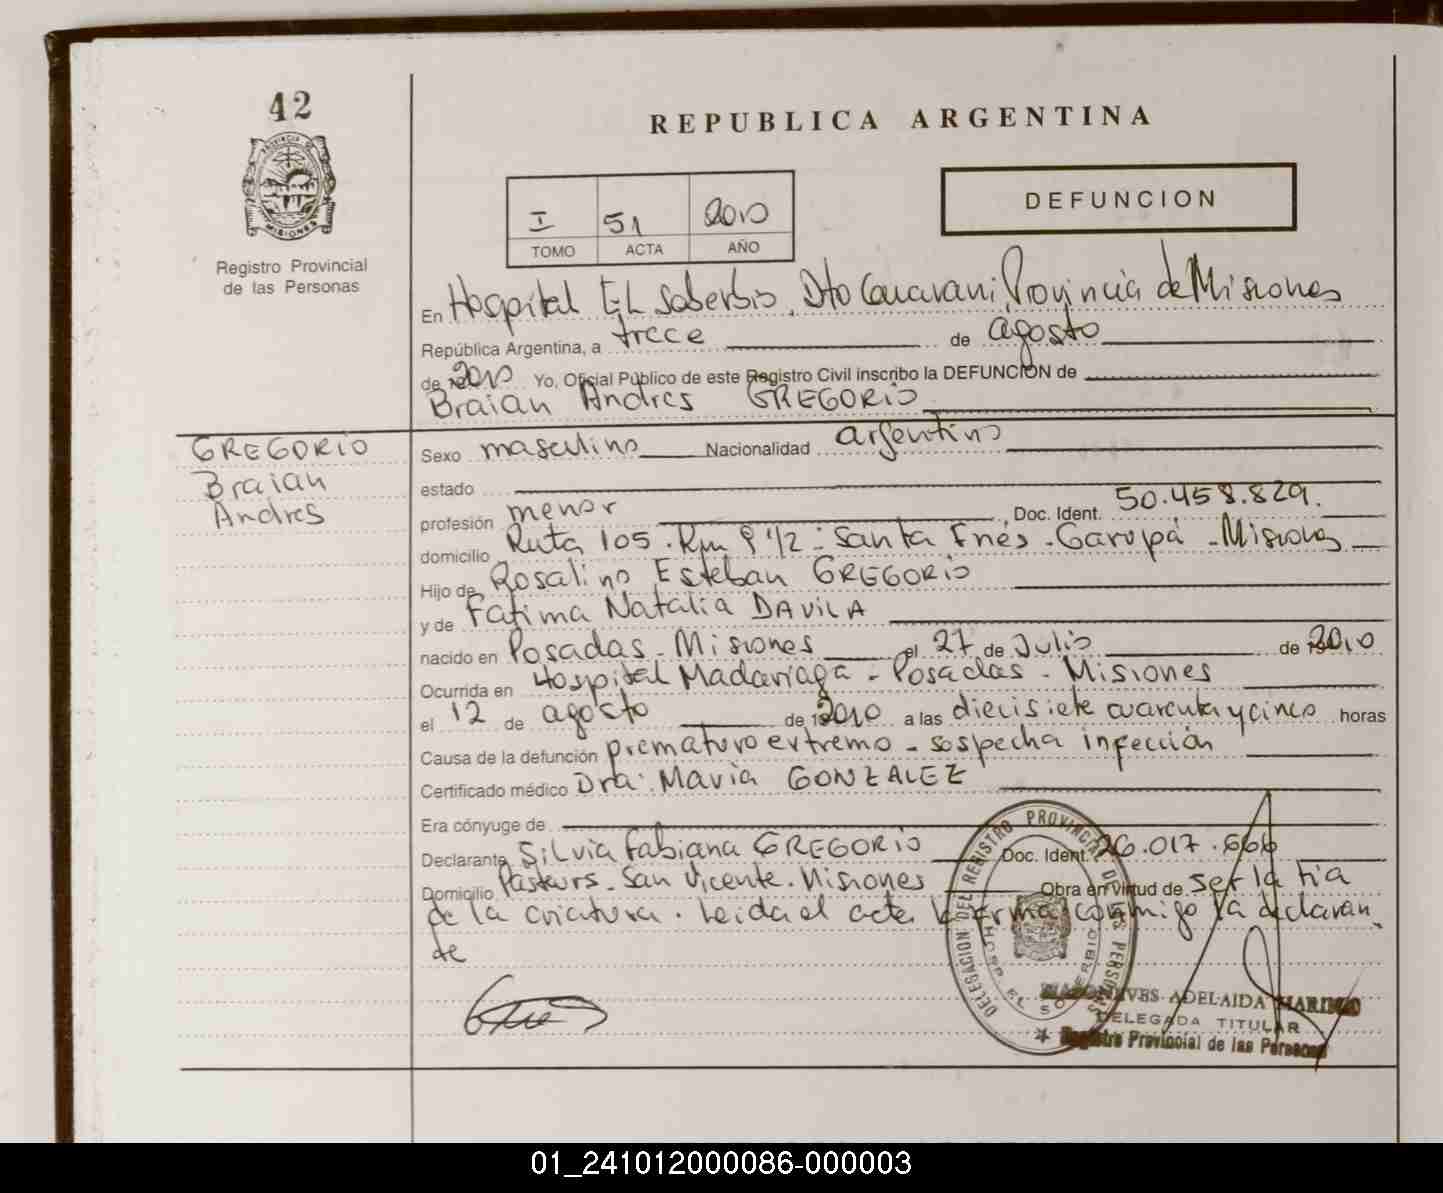 42
REPUBLICA ARGENTINA
PROVINCIA DE
MISIONES
Registro Provincial
de las Personas
DEFUNCION
I 51 2010
TOMO ACTA AÑO
En Hospital EL Soberbio, Dto Guaraní, Provincia de Misiones
República Argentina, a trece de agosto
de 2010 Yo, Oficial Público de este Registro Civil inscribo la DEFUNCION de
Braian Andres GREGORIO
GREGORIO
Braian
Andres
Sexo masculino Nacionalidad argentino
estado
profesión menor Doc. Ident. 50.458.829.
domicilio Ruta 105. Km 9 1/2 - Santa Ines - Garupá - Misiones
Hijo de Rosalino Esteban GREGORIO
y de Fatima Natalia DAVILA
nacido en Posadas - Misiones el 27 de Julio de 2010
Ocurrida en Hospital Madariaga - Posadas - Misiones
el 12 de agosto de 2010 a las diecisiete cuarenta y cinco horas
Causa de la defunción prematuro extremo - sospecha infección
Certificado médico Dra. Maria GONZALEZ
Era cónyuge de
Declarante Silvia Fabiana GREGORIO Doc. Ident. 26.017.666
Domicilio San Vicente - Misiones Obra en virtud de ser la tia
de la criatura. Leida el acta la firma conmigo la declaran
te
DELEGACION DEL REGISTRO PROVINCIAL DE LAS PERSONAS
HOSP. EL SOBERBIO
ADELAIDA
DELEGADA TITULAR
Registro Provincial de las Personas
01_241012000086-000003